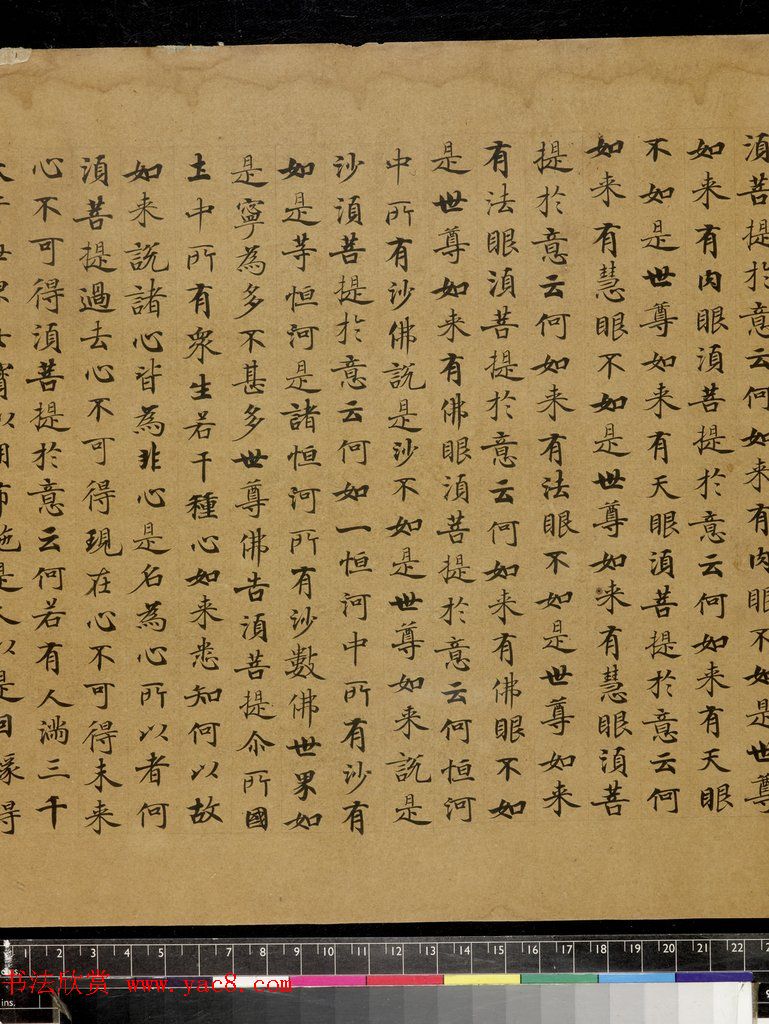 湏菩提於意云何如来有肉眼不如是世尊
如来有肉眼湏菩提於意云何如来有天眼
不如是世尊如来有天眼湏菩提於意云何
如来有慧眼不如是世尊如来有慧眼湏菩
提於意云何如来有法眼不如是世尊如来
有法眼湏菩提於意云何如来有佛眼不如
是世尊如来有佛眼湏菩提於意云何恒河
中所有沙佛說是沙不如是世尊如来說是
沙湏菩提於意云何如一恒河中所有沙有
如是等恒河是諸恒河所有沙數佛世界如
是寧為多不甚多世尊佛告湏菩提尒所國
土中所有衆生若干種心如来悉知何以故
如来說諸心皆為非心是名為心所以者何
湏菩提過去心不可得現在心不可得未来
心不可得湏菩提於意云何若有人滿三千
大千世界七寳以用布施是人以是因縁得
1 2 3 4 5 7 8 9 10 11 12 13 14 15 16 17 18 19 20 21 22
书法欣赏 www.yac8.com
ins.